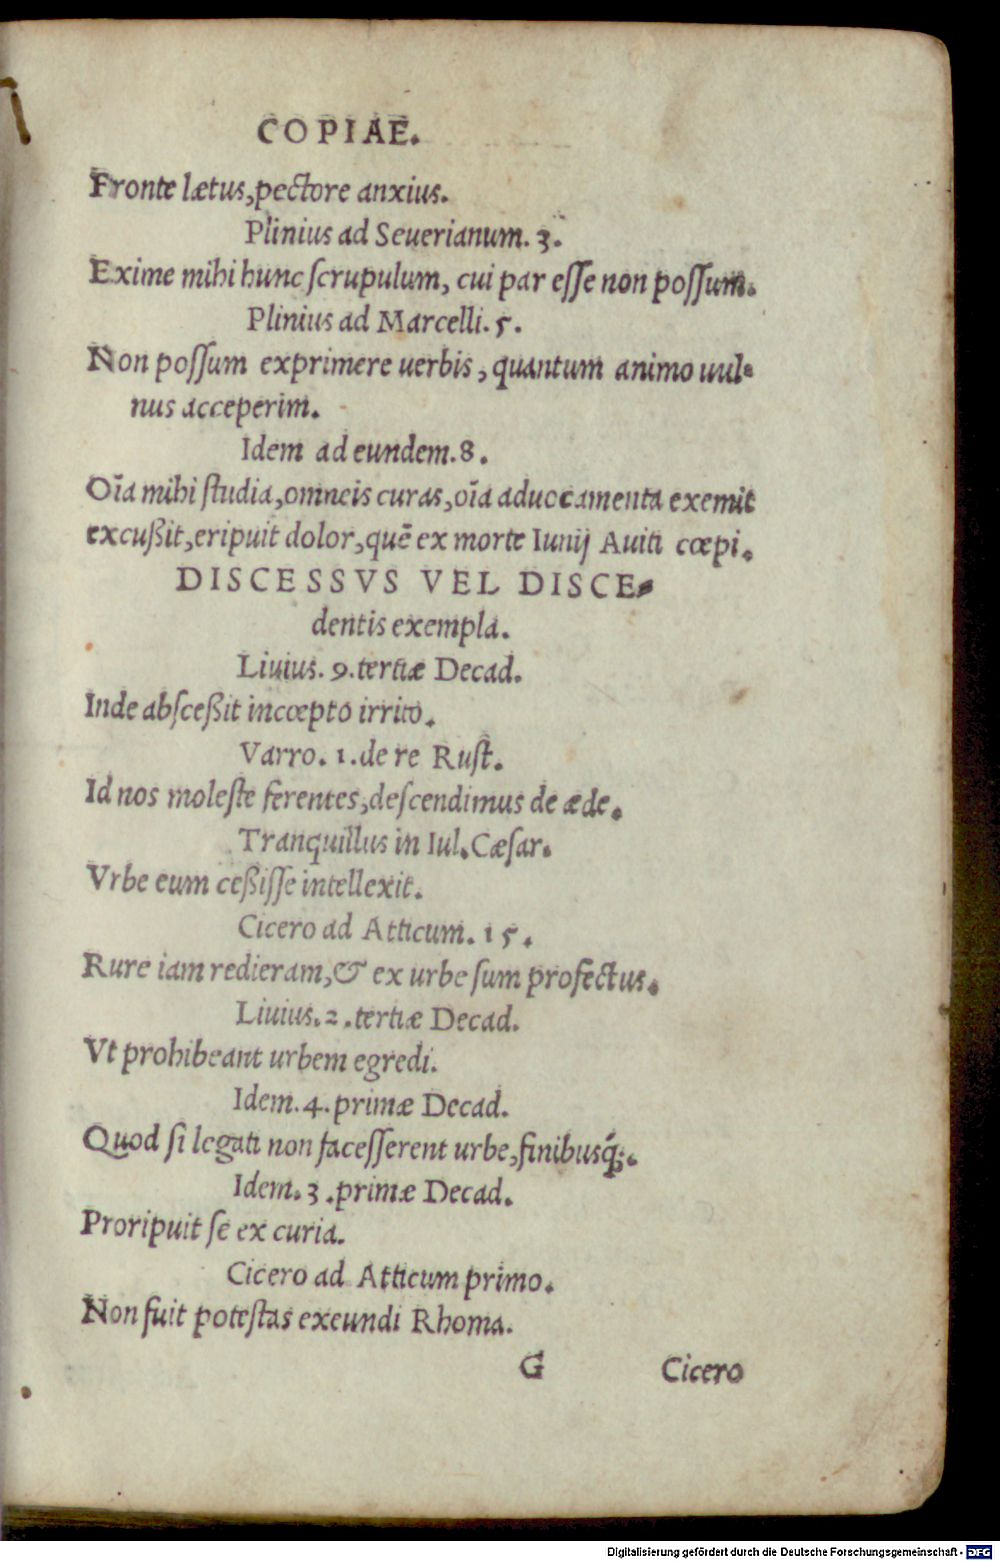 COPIAE.
Fronte lætus,pectore anxius.
Plinius ad Seuerianum. 3.
Exime mihi hunc ſcrupulum, cui par eſſe non poſſum.
Plinius ad Marcelli. 5.
Non poſſum exprimere uerbis, quantum animo uul-
nus acceperim.
Idem ad eundem. 8.
Oīa mihi ſtudia,omneis curas,oīa aduocamenta exemit
excußit,eripuit dolor,quē ex morte Iunij Auiti cœpi.
DISCESSVS VEL DISCE-
dentis exempla.
Liuius. 9. tertiæ Decad.
Inde abſceßit incœpto irrito.
Varro. 1. de re Ruſt.
Id nos moleſte ferentes,deſcendimus de æde.
Tranquillus in Iul. Cæſar.
Vrbe eum ceßiſſe intellexit.
Cicero ad Atticum. 15.
Rure iam redieram,& ex urbe ſum profectus.
Liuius. 2. tertiæ Decad.
Vt prohibeant urbem egredi.
Idem. 4. primæ Decad.
Quod ſi legati non faceſſerent urbe,finibusq́;.
Idem. 3. primæ Decad.
Proripuit ſe ex curia.
Cicero ad Atticum primo.
Non fuit poteſtas exeundi Rhoma.
G Cicero
Digitalisierung gefördert durch die Deutsche Forschungsgemeinschaft - DFG